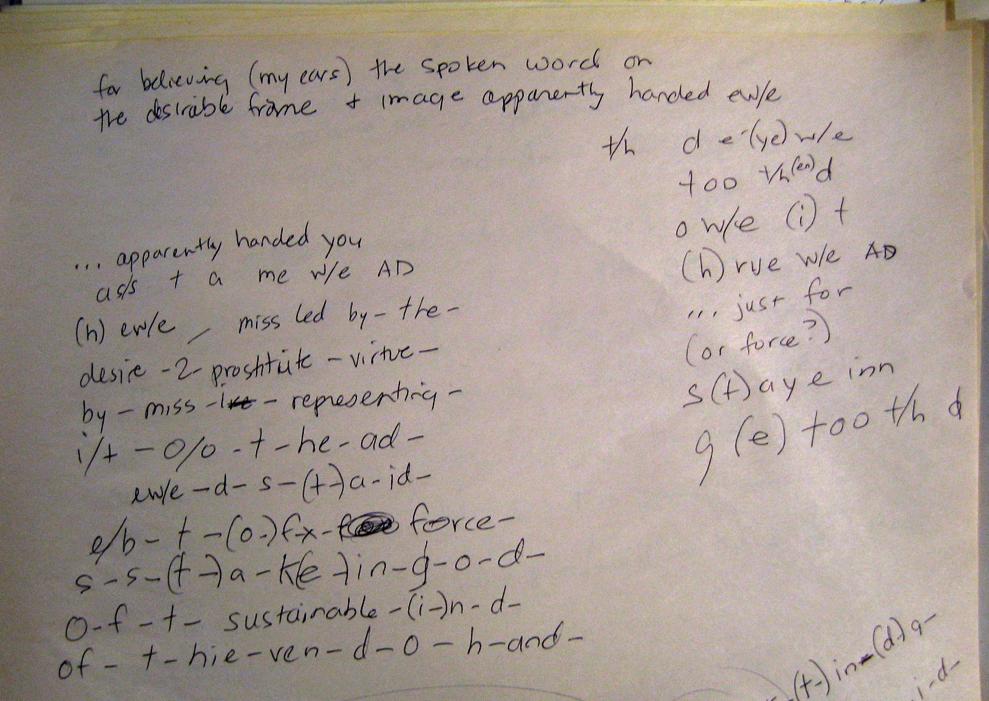 for believing (my ears) the spoken word on
the desirable frame + image apparently handed ew/e
t/h d e-(ye) w/e
too t/h(en)d
o w/e (i) t
(h) rue w/e AD
... just for
(or force?)
s(t) aye inn
g (e) too t/h d
... apparently handed you
as/s + a me w/e AD
(h) ew/e, miss led by-the-
desire -2- prostitute - virtue -
by - miss - representing -
i/t - o/o - t - he - ad -
ew/e - d - s - (t-)a - id -
e/b - t - (o-)fx - force -
s - s - (t-)a - k(e-)in - g - o - d -
O - f - t - sustainable - (i-)n - d -
of - t - hie - ven - d - o - h - and -
(t-) in - (d-)g -
i - d -